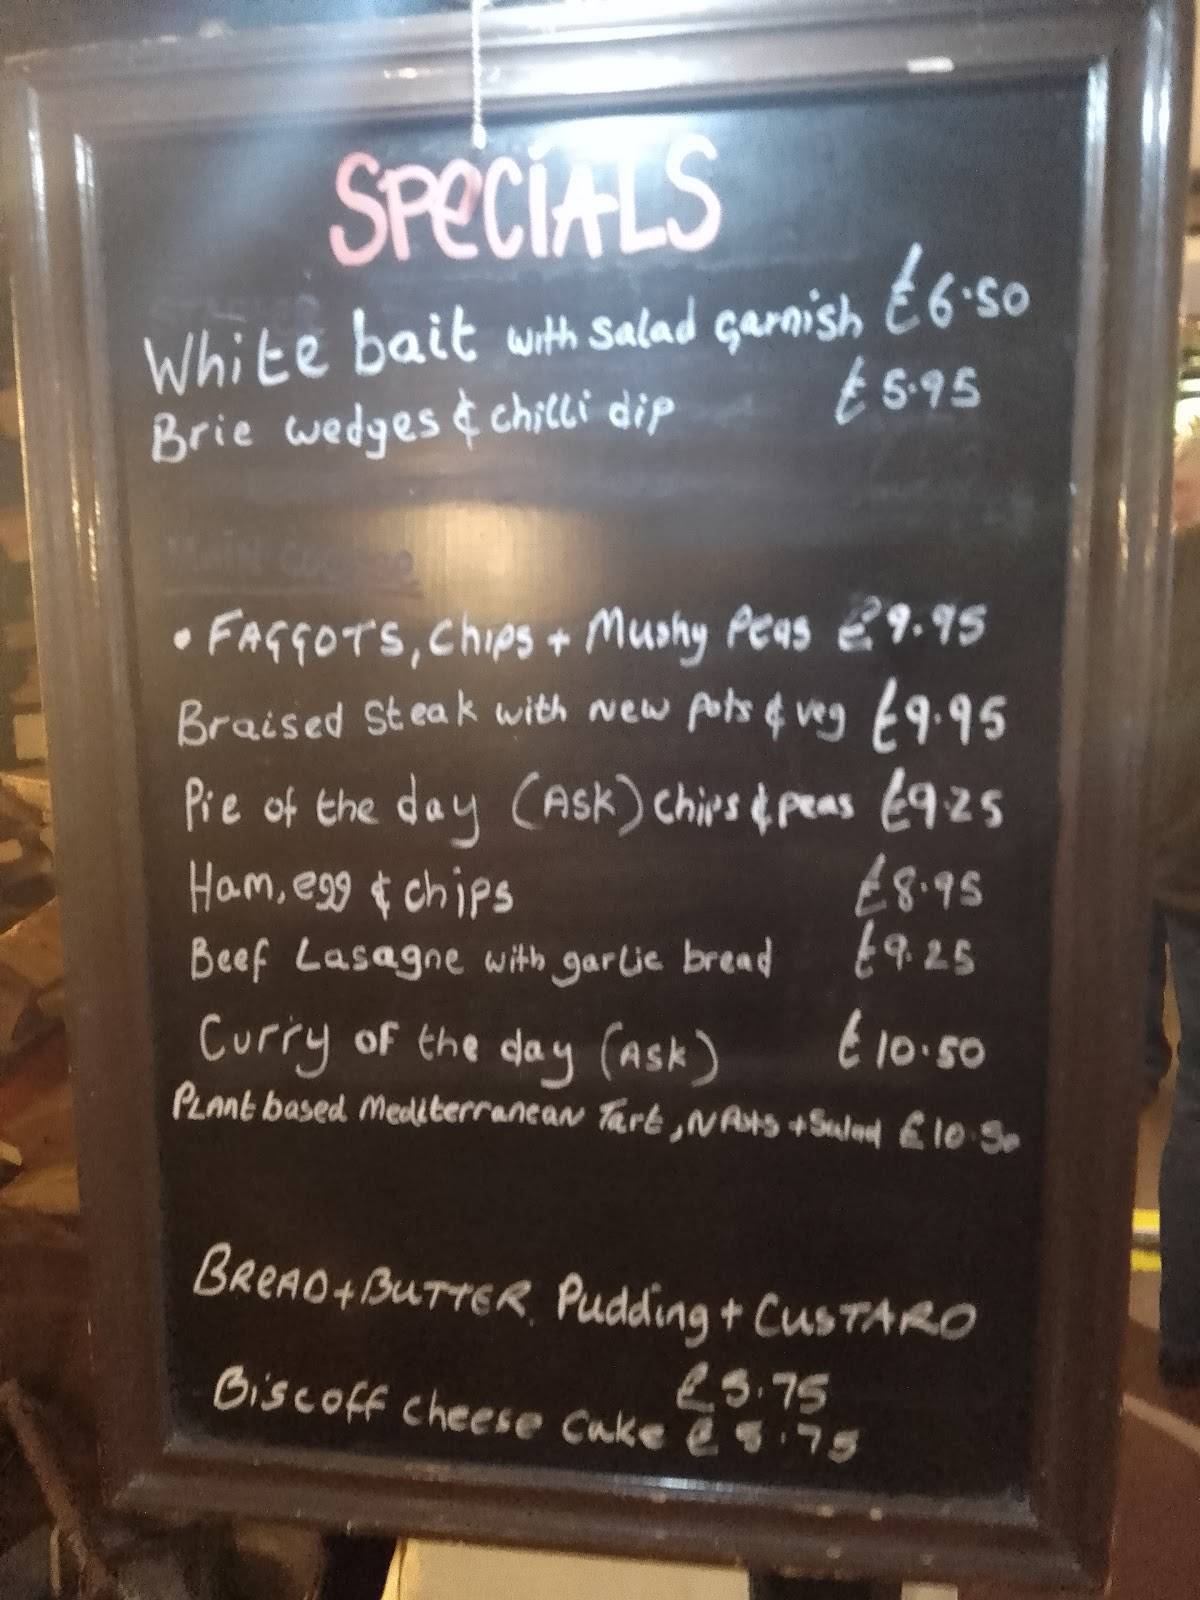 SPECIALS
White bait with salad garnish £6.50
Brie wedges & chilli dip £5.95
Main course
• FAGGOTS, Chips + Mushy Peas £9.95
Braised Steak with New pots & veg £9.95
Pie of the day (ASK) chips & peas £9.25
Ham, egg & chips £8.95
Beef Lasagne with garlic bread £9.25
Curry of the day (ASK) £10.50
PLANt based Mediterranean Tart, N Pots + Salad £10.50
BREAD + BUTTER Pudding + CUSTARD
£5.75
Biscoff cheese cake £5.75